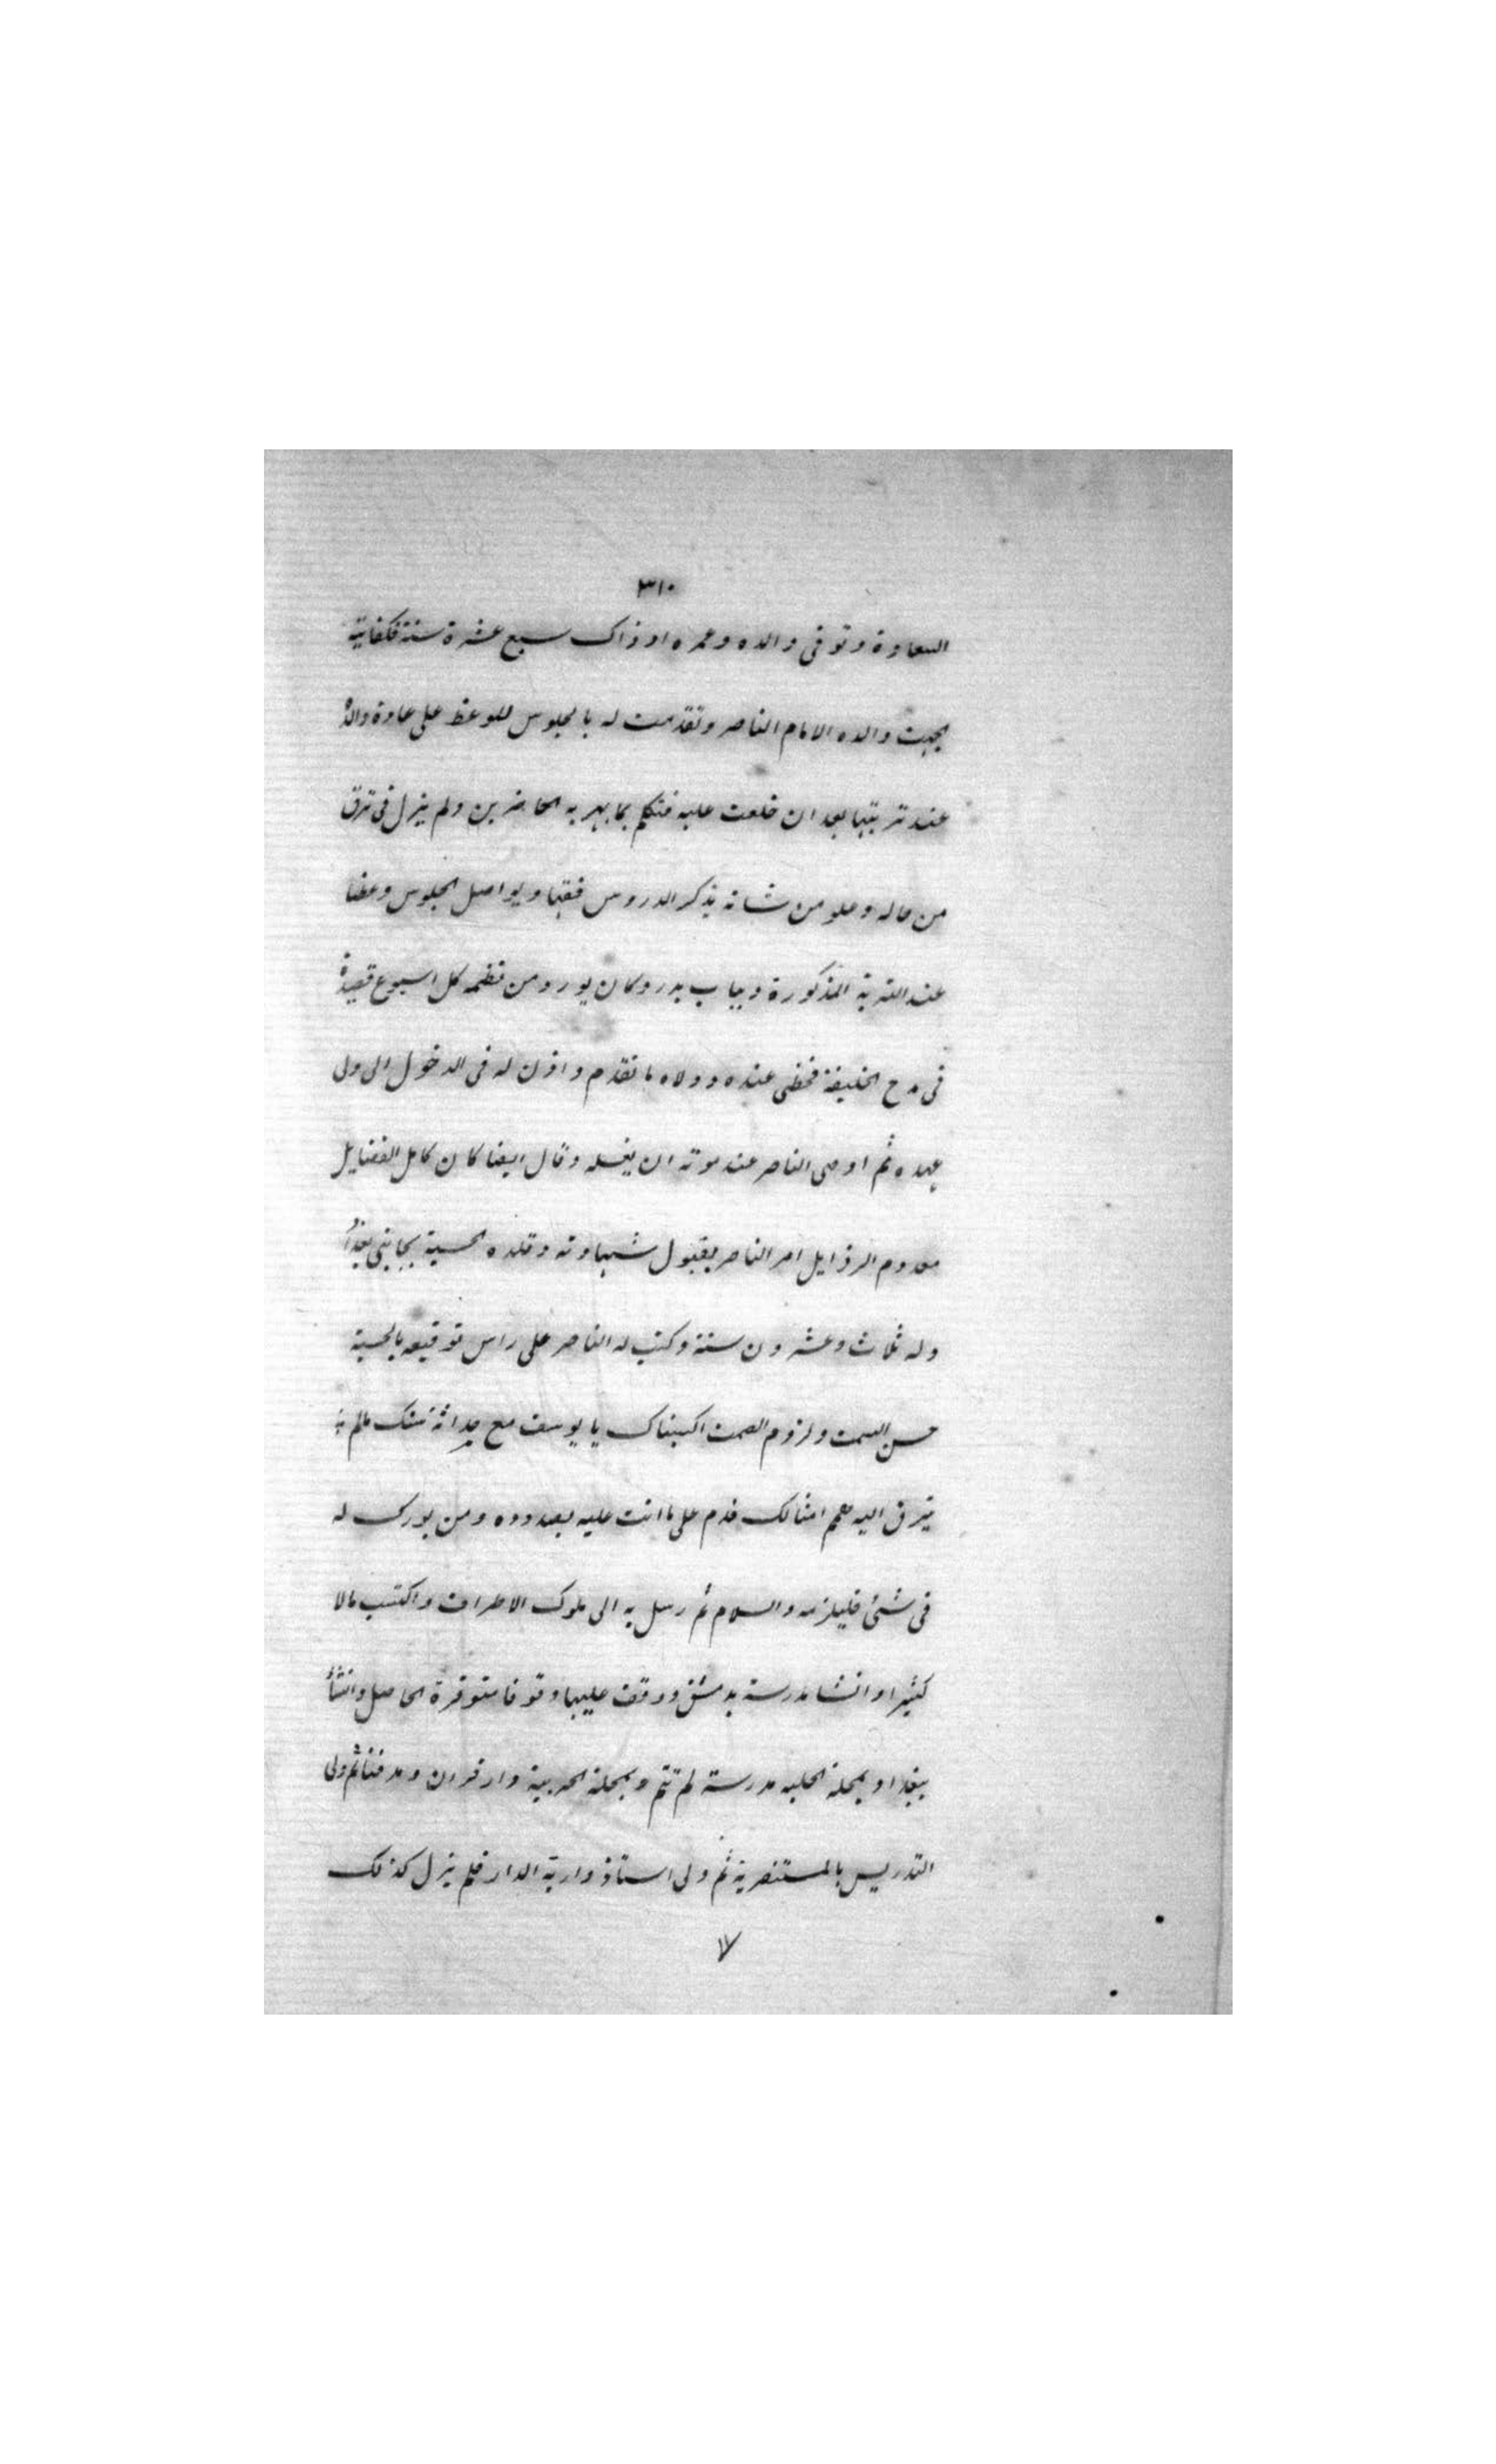 ٣١٠
السعادة وتوفى والده وعمره اذ ذاك سبع عشرة سنة فكفلته
بجهت والده الامام الناصر وتقدمت له بالجلوس للوعظ على عادة والده
عند تربتها بعد ان خلعت عليه فتكلم بما بهر به الحاضرين ولم يزل فى ترق
من حاله وعلو من شانه يذكر الدروس فقها ويواصل الجلوس وعظا
عند التربة المذكورة وبباب بدر وكان يورد من نظمه كل اسبوع قصيدة
فى مدح الخليفة فحظى عنده وولاه ما تقدم واذن له فى الدخول الى ولى
عهده ثم اوصى الناصر عند موته ان يغسله وقال ايضا كان كامل الفضايل
معدوم الرذايل امر الناصر بقبول شهادته وقلده الحسبة بجانبى بغداد
وله ثلاث وعشرون سنة وكتب له الناصر على راس توقيعه بالحسبة
حسن السمت ولزوم الصمت اكسبناك يا يوسف مع حداثة سنك مالم
يترق اليه همم امثالك فدم على ما انت عليه بصدده ومن بورك له
فى شئ فليلزمه والسلام ثم رسل به الى ملوك الاطراف واكتسب مالا
كثيرا وانشا مدرسة بدمشق ووقف عليها وقوفا متوفرة الحاصل وانشأ
ببغداد بمحلة الحلبه مدرسة لم تتم وبمحلة الحربية دار قران ومدفنا ثم ولى
التدريس بالمستنصرية ثم ولى استاذ دارية الدار فلم يزل كذلك